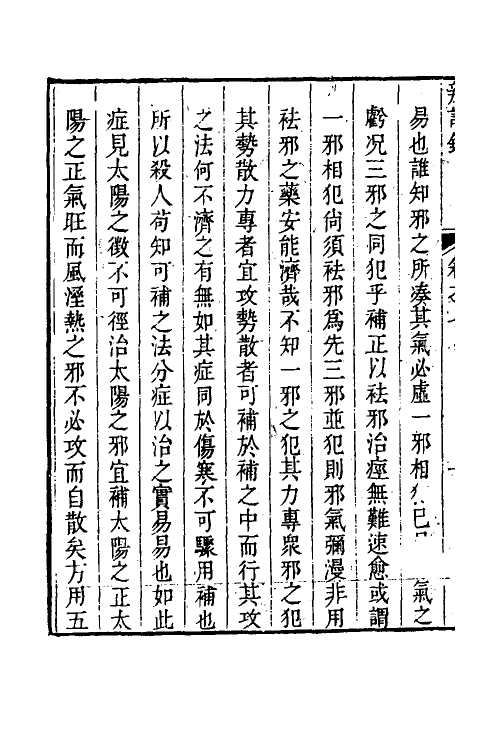 易也誰知邪之所凑其氣必虛一邪相已氣之
虧况三邪之同犯乎補正以祛邪治痙無難速愈或謂
一邪相犯尙須祛邪爲先三邪並犯則邪氣彌漫非用
祛邪之藥安能濟哉不知一邪之犯其力專衆邪之犯
其勢散力專者宜攻勢散者可補於補之中而行其攻
之法何不濟之有無如其症同於傷寒不可驟用補也
所以殺人苟知可補之法分症以治之實易易也如此
症見太陽之徵不可徑治太陽之邪宜補太陽之正太
陽之正氣旺而風溼熱之邪不必攻而自散矣方用五